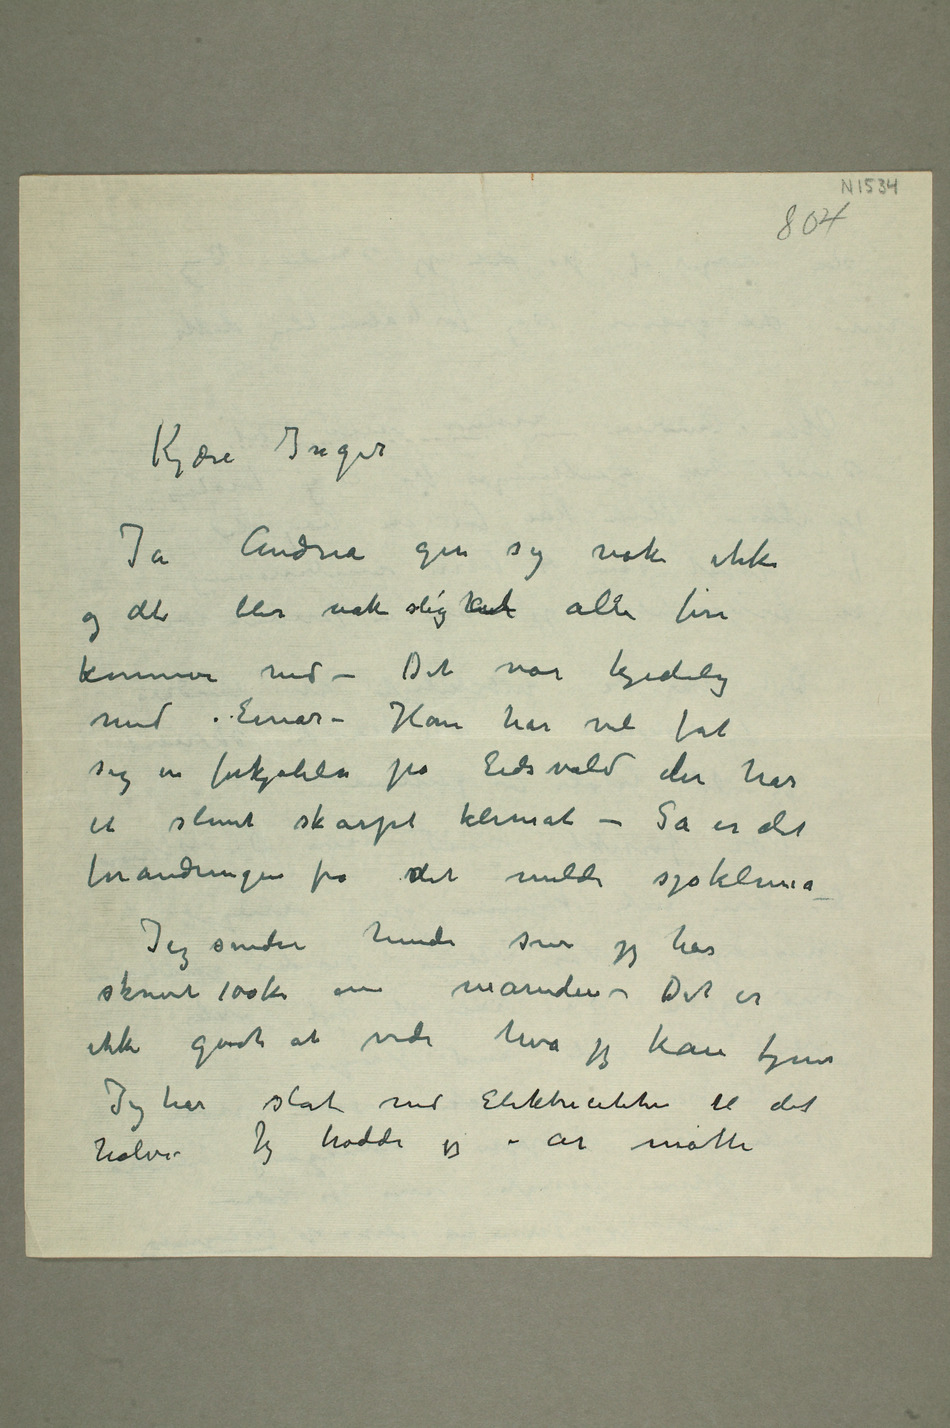 N1534
804
Kjære Inger
Ja Andrea gir sig nok ikke
og det blir nok slig at alle fire
kommer ned – Det var kjedelig
med Einar – Han har vel fåt
sig en forkjølelse på Eidsvold der har
et slemt skarpt klimat – Så er det
forandringen fra det milde sjøklima –
Jeg sender hende som jeg har
skrevet 100kr om måneden – Det er
ikke godt at vide hva jeg kan tjene
Jeg har slåt ned Elektriciteten til det
halve. Jeg trodde jeg i år måtte